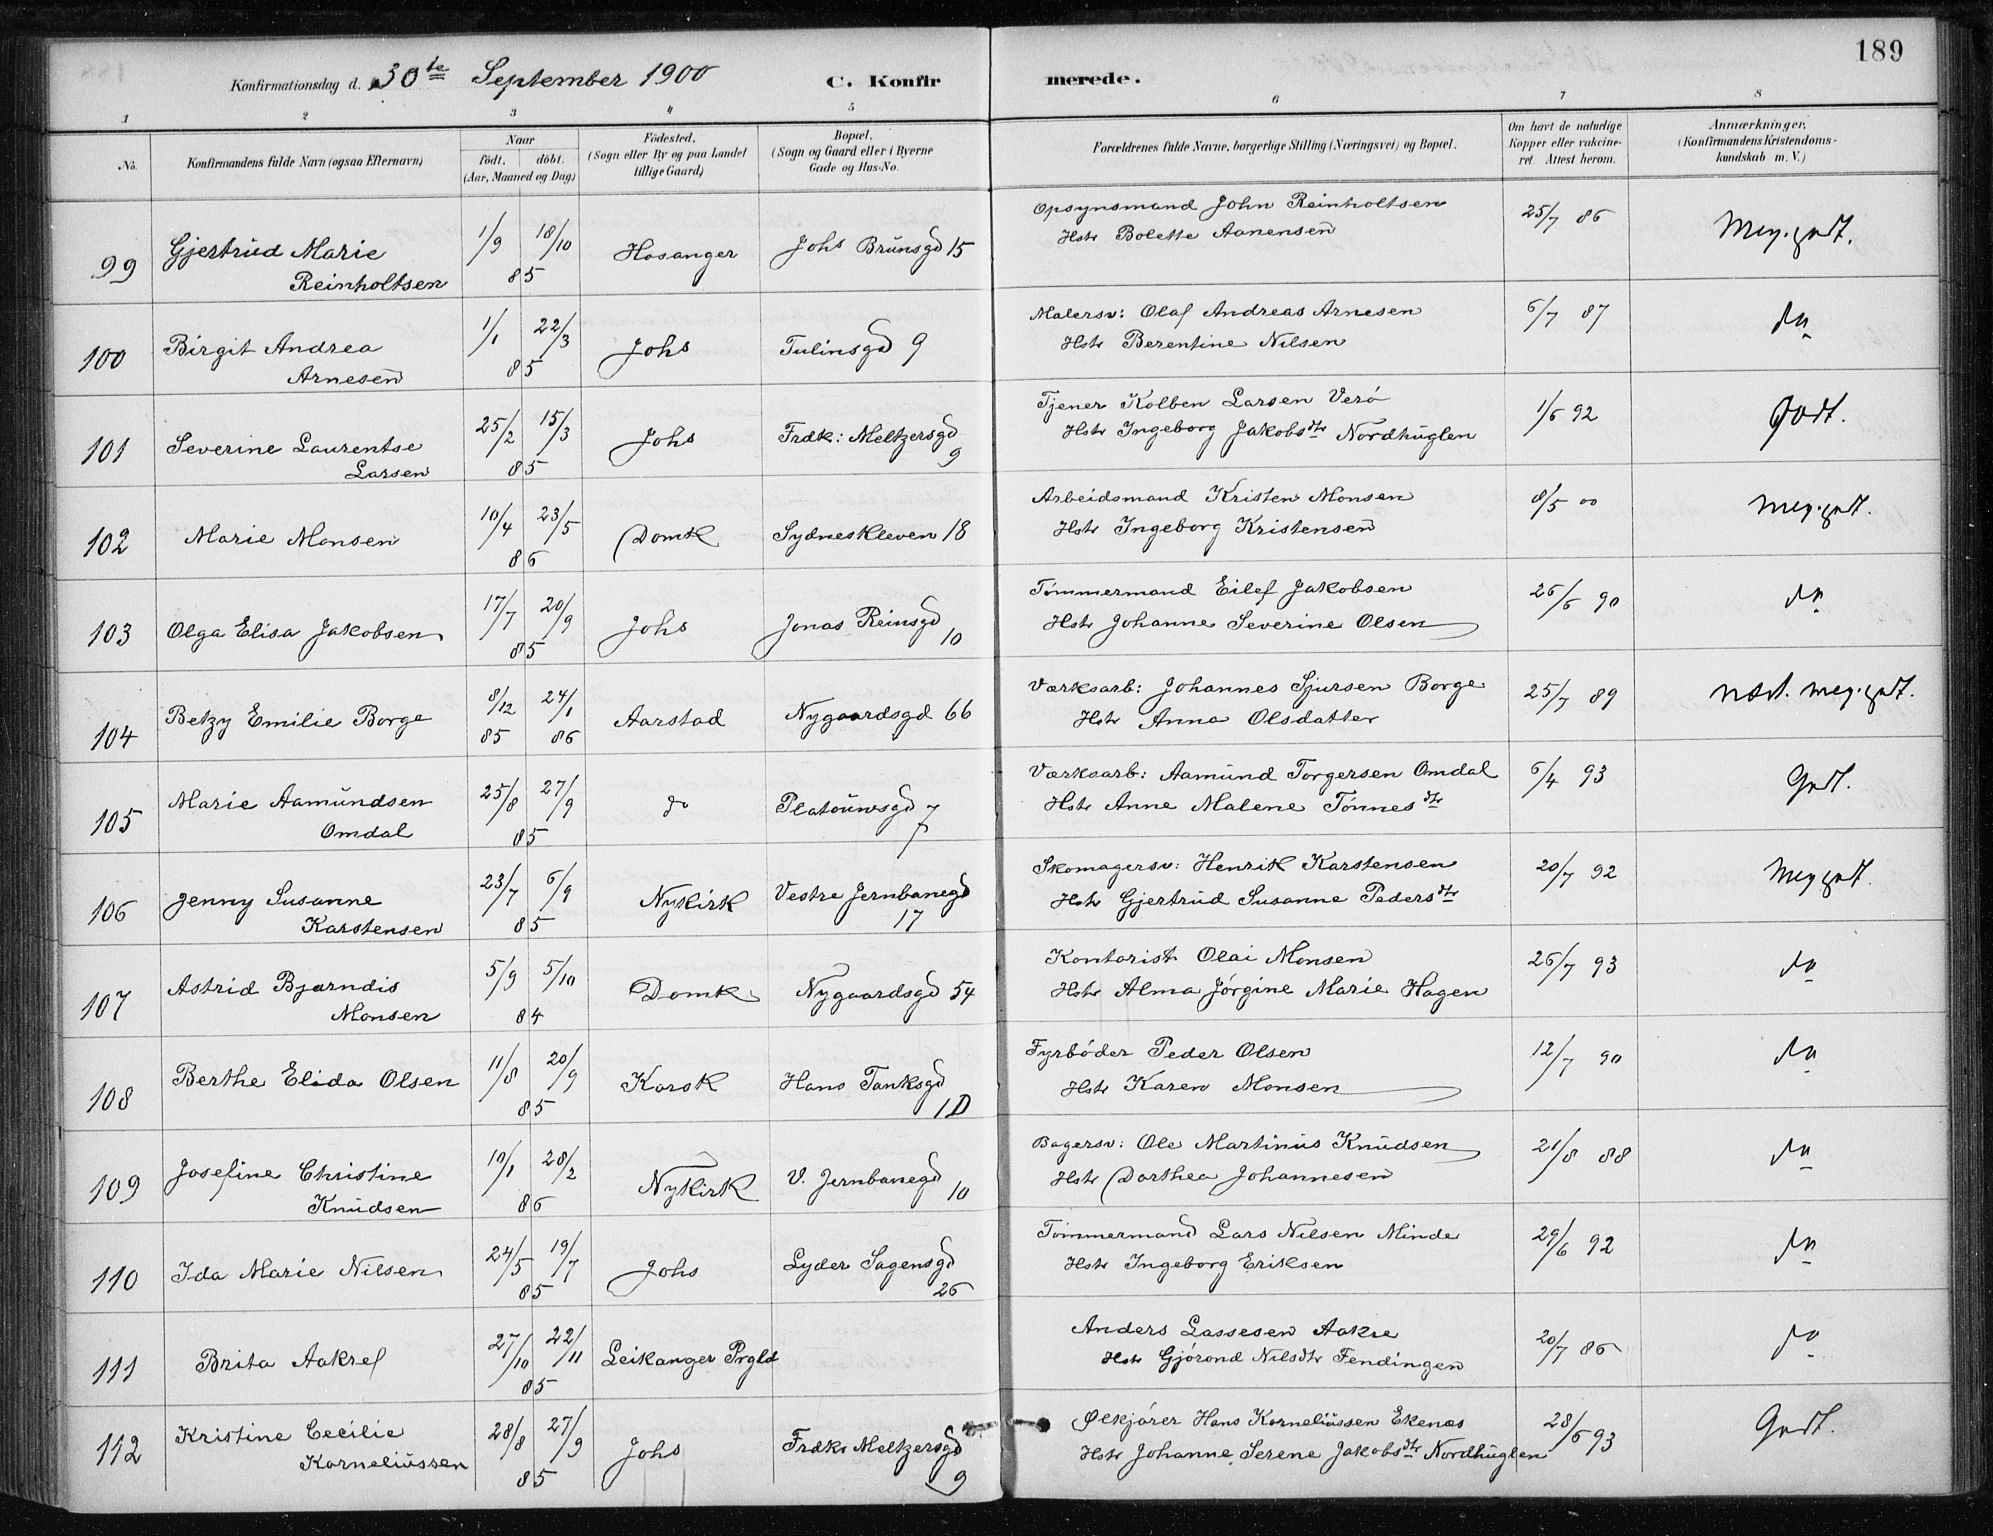 189
Konfirmationsdag d. 30te September 1900 C. Konfirmerede.
1 2 3 4 5 6 7 8
No. Konfirmandens fulde Navn (ogsaa Efternavn) Naar født. døbt. (Aar, Maaned og Dag) Fødested. (Sogn eller By og paa Landet tillige Gaard) Bopæl. (Sogn og Gaard eller i Byerne Gade og Hus-No. Forældrenes fulde Navne, borgerlige Stilling (Næringsvei) og Bopæl. Om havt de naturlige Kopper eller vakcineret. Attest herom. Anmærkninger. (Konfirmandens Kristendomskundskab m. V.)
99 Gjertrud Marie Reinholtsen 1/9 18/10 85 Hosanger Johs Brunsgd 15 Opsynsmand John Reinholtsen
Hstr Bolette Aanensen 25/7 86 Meg. godt.
100 Birgit Andrea Arnesen 1/1 22/3 85 Johs Tulinsgd 9 Malersv: Olaf Andreas Arnesen
Hstr Berentine Nilsen 6/7 87 do
101 Severine Laurentse Larsen 25/2 15/3 85 Johs Fredk: Meltzersgd 9 Tjener Kolben Larsen Verø
Hstr Ingeborg Jakobsdtr Nordhuglen 1/6 92 Godt.
102 Marie Monsen 10/4 23/5 86 Domk Sydneskleven 18 Arbeidsmand Kristen Monsen
Hstr Ingeborg Kristensen 8/5 00 Meg. godt.
103 Olga Elisa Jakobsen 17/7 20/9 85 Johs Jonas Reinsgd 10 Tømmermand Eilef Jakobsen
Hstr Johanne Severine Olsen 26/6 90 do
104 Betzy Emilie Borge 8/12 85 24/1 86 Aarstad Nygaardsgd 66 Værksarb: Johannes Sjursen Borge
Hstr Anna Olsdatter 25/7 89 Næst. meg. godt.
105 Marie Aamundsen Omdal 25/8 27/9 85 do Platouwsgd 7 Værksarb: Aamund Torgersen Omdal
Hstr Anne Malene Tønnesdtr 6/4 93 Godt.
106 Jenny Susanne Karstensen 23/7 6/9 85 Nykirk Vestre Jernbanegd 17 Skomagersv: Henrik Karstensen
Hstr Gjertrud Susanne Pedersdtr 20/7 92 Meg godt.
107 Astrid Bjarndis Monsen 5/9 5/10 84 Domk Nygaardsgd 54 Kontorist Olai Monsen
Hstr Alma Jørgine Marie Hagen 26/7 93 do
108 Berthe Elida Olsen 11/8 20/9 85 Korsk Hans Tanksgd 1D Fyrbøder Peder Olsen
Hstr Karen Monsen 12/7 90 do
109 Josefine Christine Knudsen 10/1 28/2 86 Nykirk V. Jernbanegd 10 Bagersv: Ole Martinus Knudsen
Hstr Dorthea Johannesen 21/8 88 do
110 Ida Marie Nilsen 24/5 19/7 85 Johs Lyder Sagensgd 26 Tømmermand Lars Nilsen Minde
Hstr Ingeborg Eriksen 29/6 92 do
111 Brita Aakref 27/10 22/11 85 Leikanger Prgld Anders Lassesen Aakre
Hstr Gjørond Nilsdtr Fendingen 20/7 86 do
112 Kristine Cecilie Korneliussen 28/8 27/9 85 Johs Fredks Meltzersgd 9 Ølkjører Hans Korneliussen Ekenæs
Hstr Johanne Serene Jakobsdtr Nordhuglen 28/6 93 Godt.